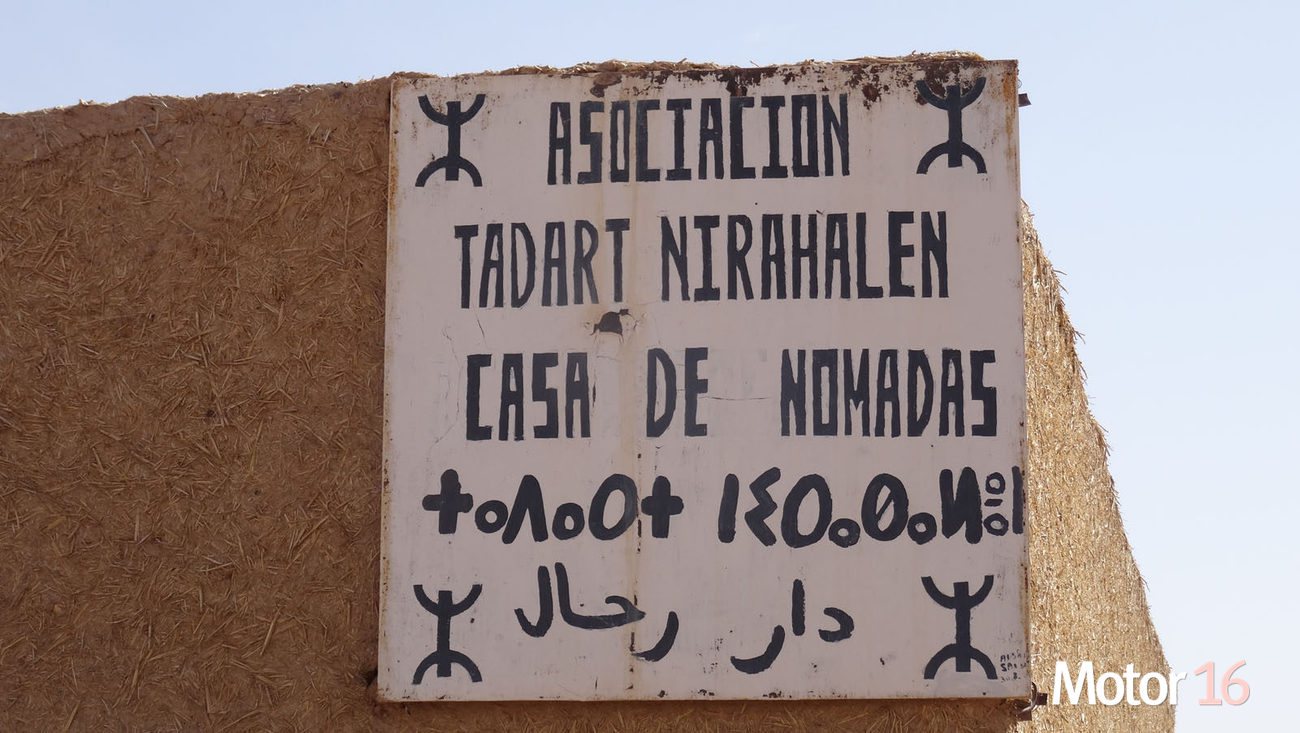 ASOCIACION
TADART NIRAHALEN
CASA DE NOMADAS
ⵜⴰⴷⴰⵔⵜ ⵏⵉⵔⴰⵀⴰⵍⴻⵏ
دار رحال
Motor 16